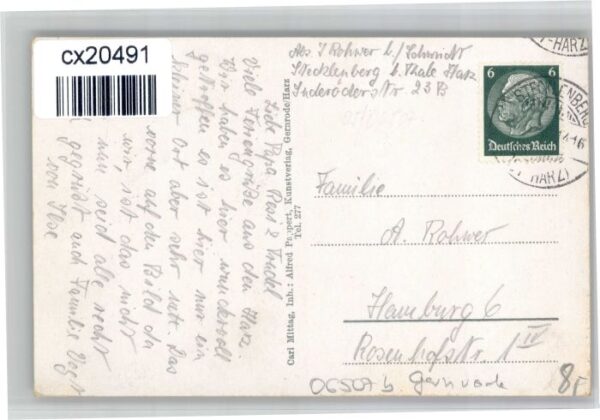 cx20491
Abs. J Rohwer b./Schmidt
Stecklenberg b. Thale Harz
Suderoder Str 23 B
6 6
Deutsches Reich
Carl Mittag, Inh.: Alfred Pappert, Kunstverlag, Gernrode/Harz
Tel. 277
Liebe Papa
Viele Feriengrüße aus dem Harz.
Wir haben es hier wundervoll
getroffen es ist hier nur ein
kleiner Ort aber sehr nett. Das
vorne auf den Bild da
wir, ist das nicht
nun seid alle recht
gegrüßt auch Familie Vogt
von Ilse
Familie
A. Rohwer
Hamburg 6
Rosenhofstr. 1 IV
06507 b Gernrode 8,-